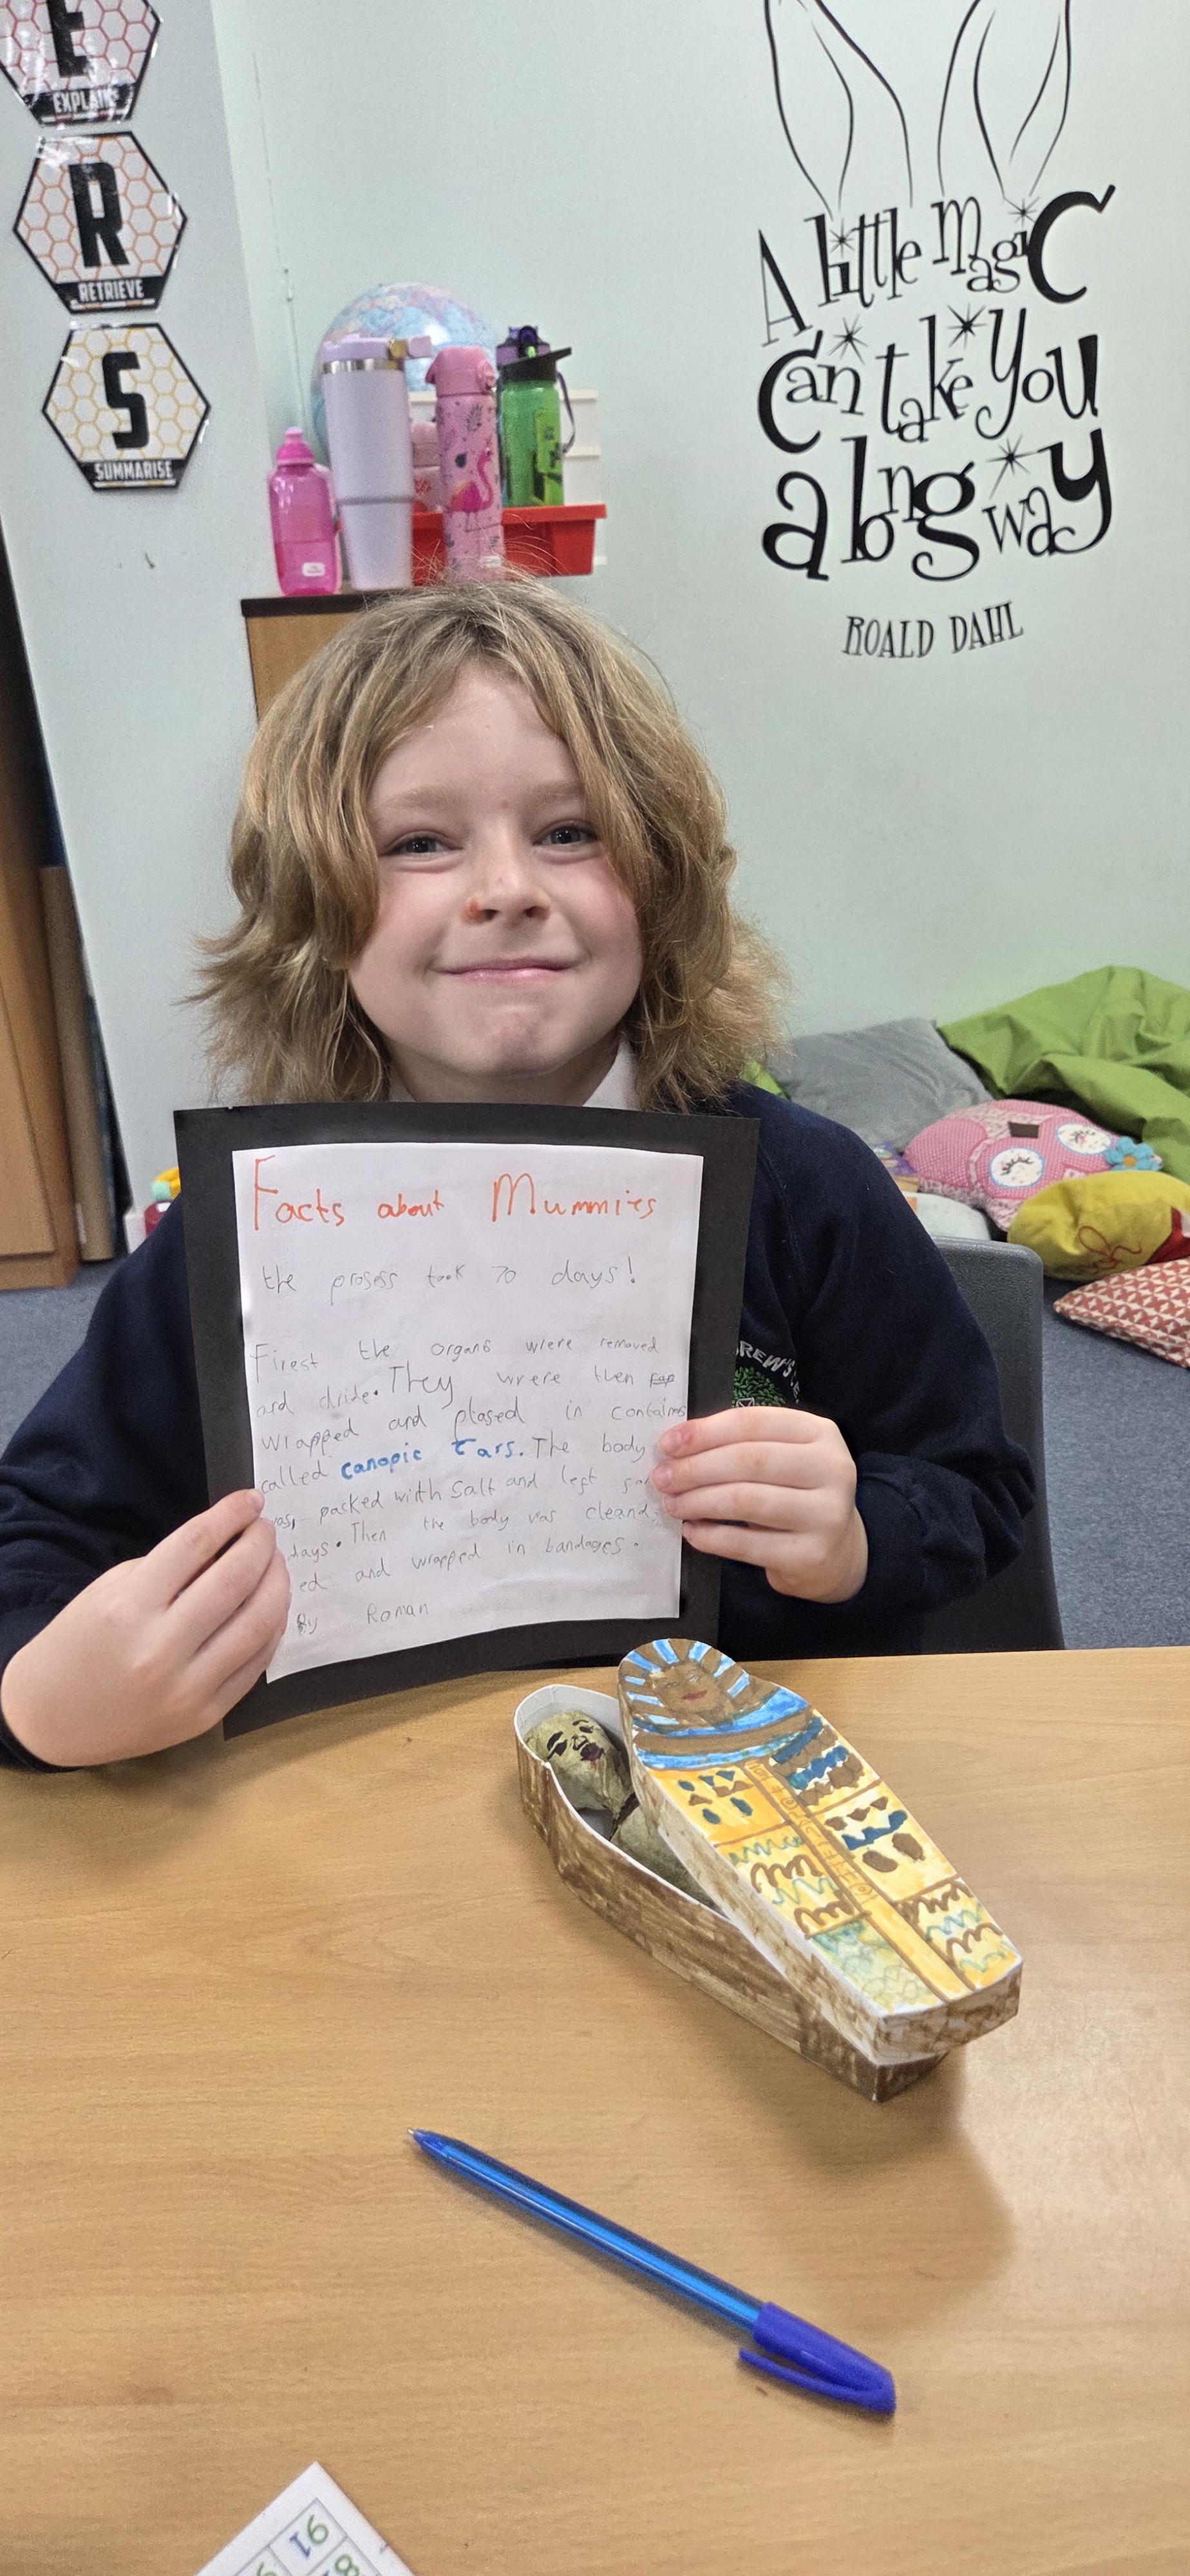 E
EXPLAIN
R
RETRIEVE
S
SUMMARISE
A little Magic
Can take You
along way
ROALD DAHL
Facts about Mummies
the prosess took 70 days!
Firest the organs wrere removed
and dride. They wrere then
wrapped and plased in contains
called canopic Tars. The body
was, packed with Salt and left for
days. Then the body was cleand
ed and wrapped in bandages.
By Roman
REW'S
16
91
8